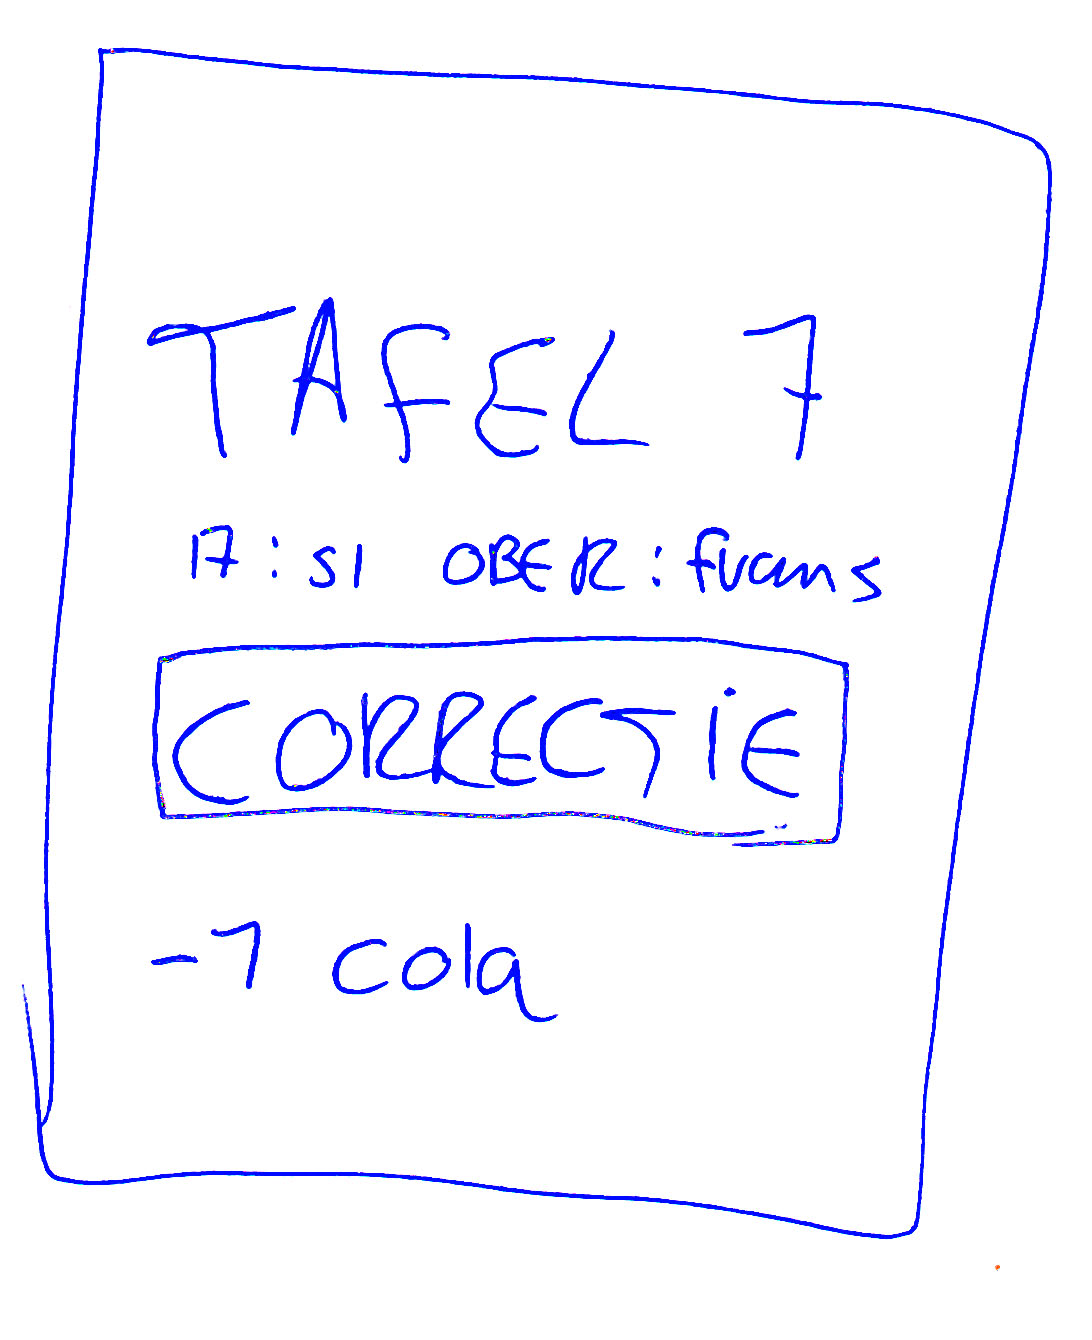 TAFEL 7
17:51 OBER: frans
CORRECTIE
-1 cola